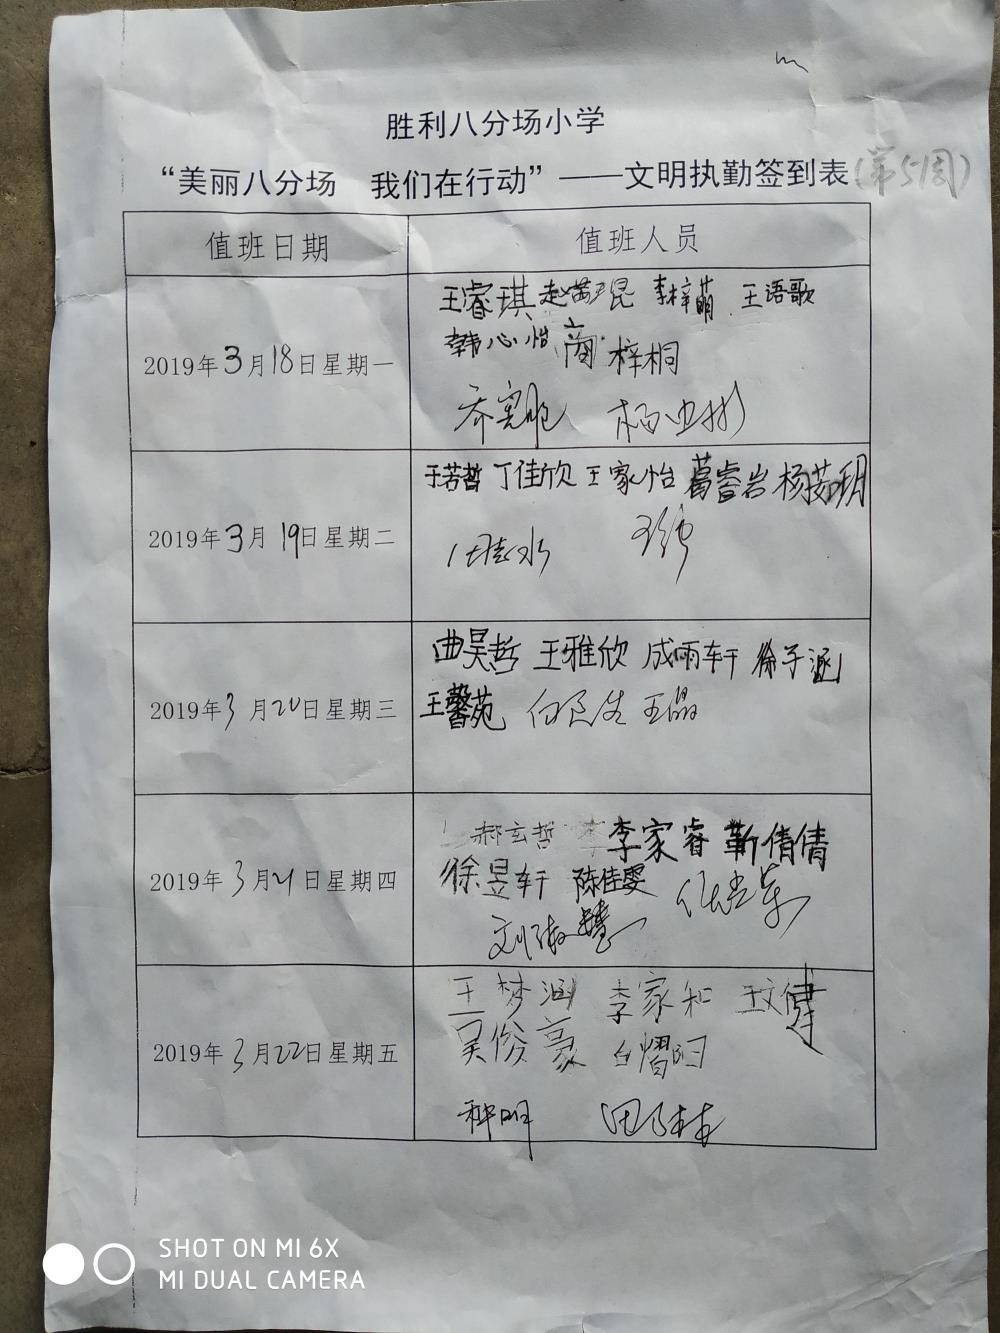 胜利八分场小学
“美丽八分场 我们在行动”——文明执勤签到表(第5周)
值班日期 值班人员
2019年3月18日星期一
王睿琪 李梓萌 王语歌
韩心怡 商梓桐
2019年3月19日星期二
于芳哲 丁佳欣 王家怡 葛睿岩 杨茹玥
2019年3月20日星期三
曲昊哲 王雅欣 成雨轩 徐子涵
王馨苑 王晶
2019年3月21日星期四
郝玄哲 李家睿 靳倩倩
徐昱轩 陈佳雯
刘淑慧
2019年3月22日星期五
王梦涵 李家和 王文健
吴俊豪 白熠阳
种明
SHOT ON MI 6X
MI DUAL CAMERA